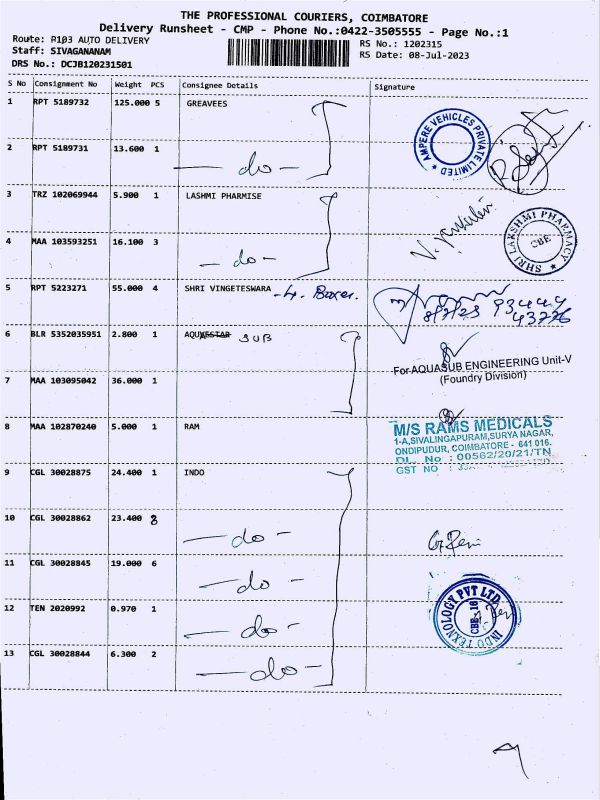 THE PROFESSIONAL COURIERS, COIMBATORE
Delivery Runsheet - CMP - Phone No.:0422-3505555 - Page No.:1
Route: R103 AUTO DELIVERY
RS No.: 1202315
Staff: SIVAGANANAM
RS Date: 08-Jul-2023
DRS No.: DCJB120231501
S No Consignment No Weight PCS Consignee Details Signature
1 RPT 5189732 125.000 5 GREAVEES
AMPERE VEHICLES PRIVATE LIMITED
2 RPT 5189731 13.600 1
- do -
3 TRZ 102069944 5.900 1 LASHMI PHARMISE
SHRI LAKSHMI PHARMACY
CBE
4 MAA 103593251 16.100 3
- do -
5 RPT 5223271 55.000 4 SHRI VINGETESWARA -4. Boxes.
8/7/23 93444
43776
6 BLR 5352035951 2.800 1 SUB
For AQUASUB ENGINEERING Unit-V
(Foundry Division)
7 MAA 103095042 36.000 1
8 MAA 102870240 5.000 1 RAM
M/S RAMS MEDICALS
1-A,SIVALINGAPURAM,SURYA NAGAR,
ONDIPUDUR, COIMBATORE - 641 016.
DL. No : 00562/20/21/TN
GST NO :
9 CGL 30028875 24.400 1 INDO
10 CGL 30028862 23.400 8
- do -
11 CGL 30028845 19.000 6
- do -
INDO TEXNOLOGY PVT LTD
CBE-16
12 TEN 2020992 0.970 1
- do -
13 CGL 30028844 6.300 2
- do -